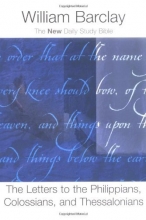 William Barclay
The New Daily Study Bible
order that at the name
very knee should bow, of
eaven, and things upon t
and things below the ear
The Letters to the Philippians,
Colossians, and Thessalonians